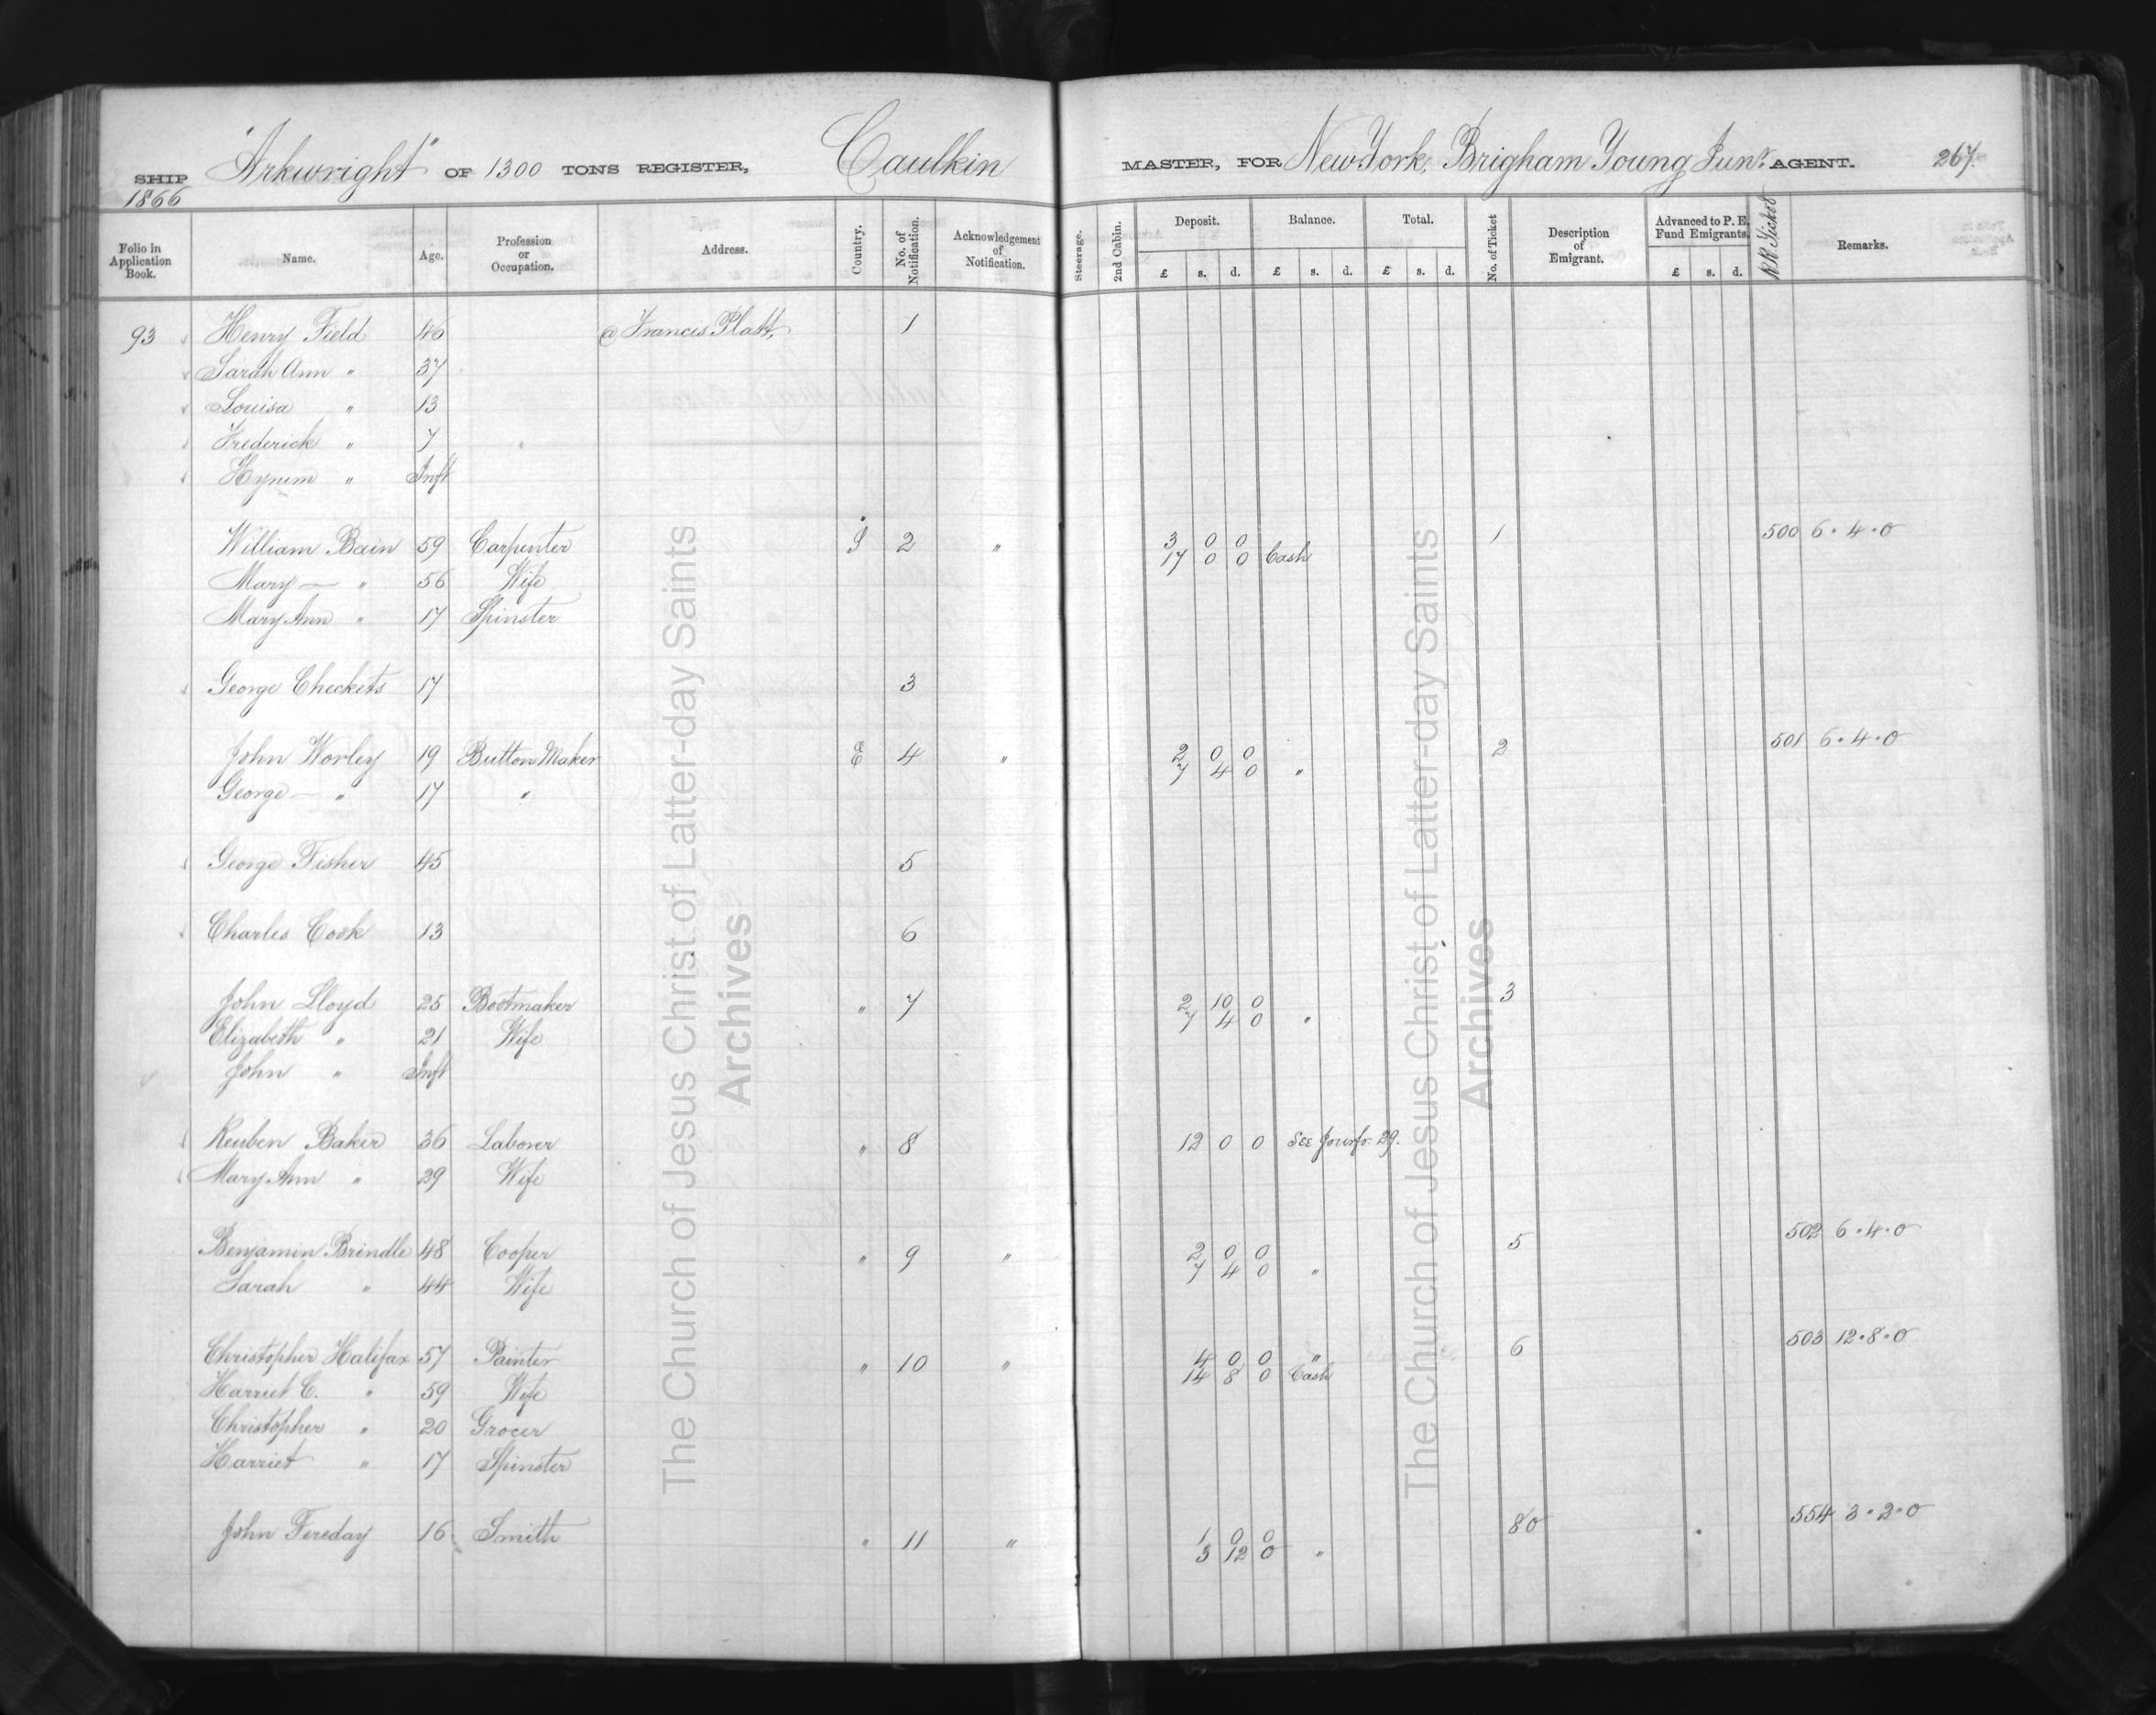 SHIP "Arkwright" OF 1300 TONS REGISTER, Caulkin MASTER, FOR New York, Brigham Young Junr. AGENT. 267.
1866
Folio in Application Book. Name. Age. Profession or Occupation. Address. Country. No. of Notification. Acknowledgement of Notification. Steerage. 2nd Cabin. Deposit. £ s. d. Balance. £ s. d. Total. £ s. d. No. of Ticket Description of Emigrant. Advanced to P. E. Fund Emigrants. £ s. d. RR Ticket Remarks.
93 Henry Field 46 @ Francis Platt, 1
Sarah Ann " 37
Louisa " 13
Frederick " 7
Hyrum " Inft
William Bain 59 Carpenter S 2 " 3 0 0 1 500 6.4.0
17 0 0 Cash
Mary — " 56 Wife
Mary Ann " 17 Spinster
George Checkets 17 3
John Worley 19 Button Maker E 4 " 2 0 0 2 501 6.4.0
7 4 0 "
George — " 17 "
George Fisher 45 5
Charles Cook 13 6
John Lloyd 25 Bootmaker " 7 2 10 0 3
7 4 0 "
Elizabeth " 21 Wife
John " Inft
Reuben Baker 36 Laborer " 8 12 0 0 See Jour fo. 29.
Mary Ann " 29 Wife
Benjamin Brindle 48 Cooper " 9 " 2 0 0 5 502 6.4.0
7 4 0 "
Sarah " 44 Wife
Christopher Halifax 57 Painter " 10 " 4 0 0 " 6 503 12.8.0
14 8 0 Cash
Harriet C. " 59 Wife
Christopher " 20 Grocer
Harriet " 17 Spinster
John Fereday 16 Smith " 11 " 1 0 0 80 554 3.2.0
3 12 0 "
The Church of Jesus Christ of Latter-day Saints
Archives
The Church of Jesus Christ of Latter-day Saints
Archives